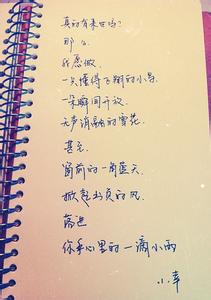 真的有来世吗？
那么
我愿做
一只懂得飞翔的小鸟
一朵瞬间开放
无声消融的雪花
甚至
窗前的一角蓝天
掀起书页的风
落进
你手心里的一滴小雨
小幸